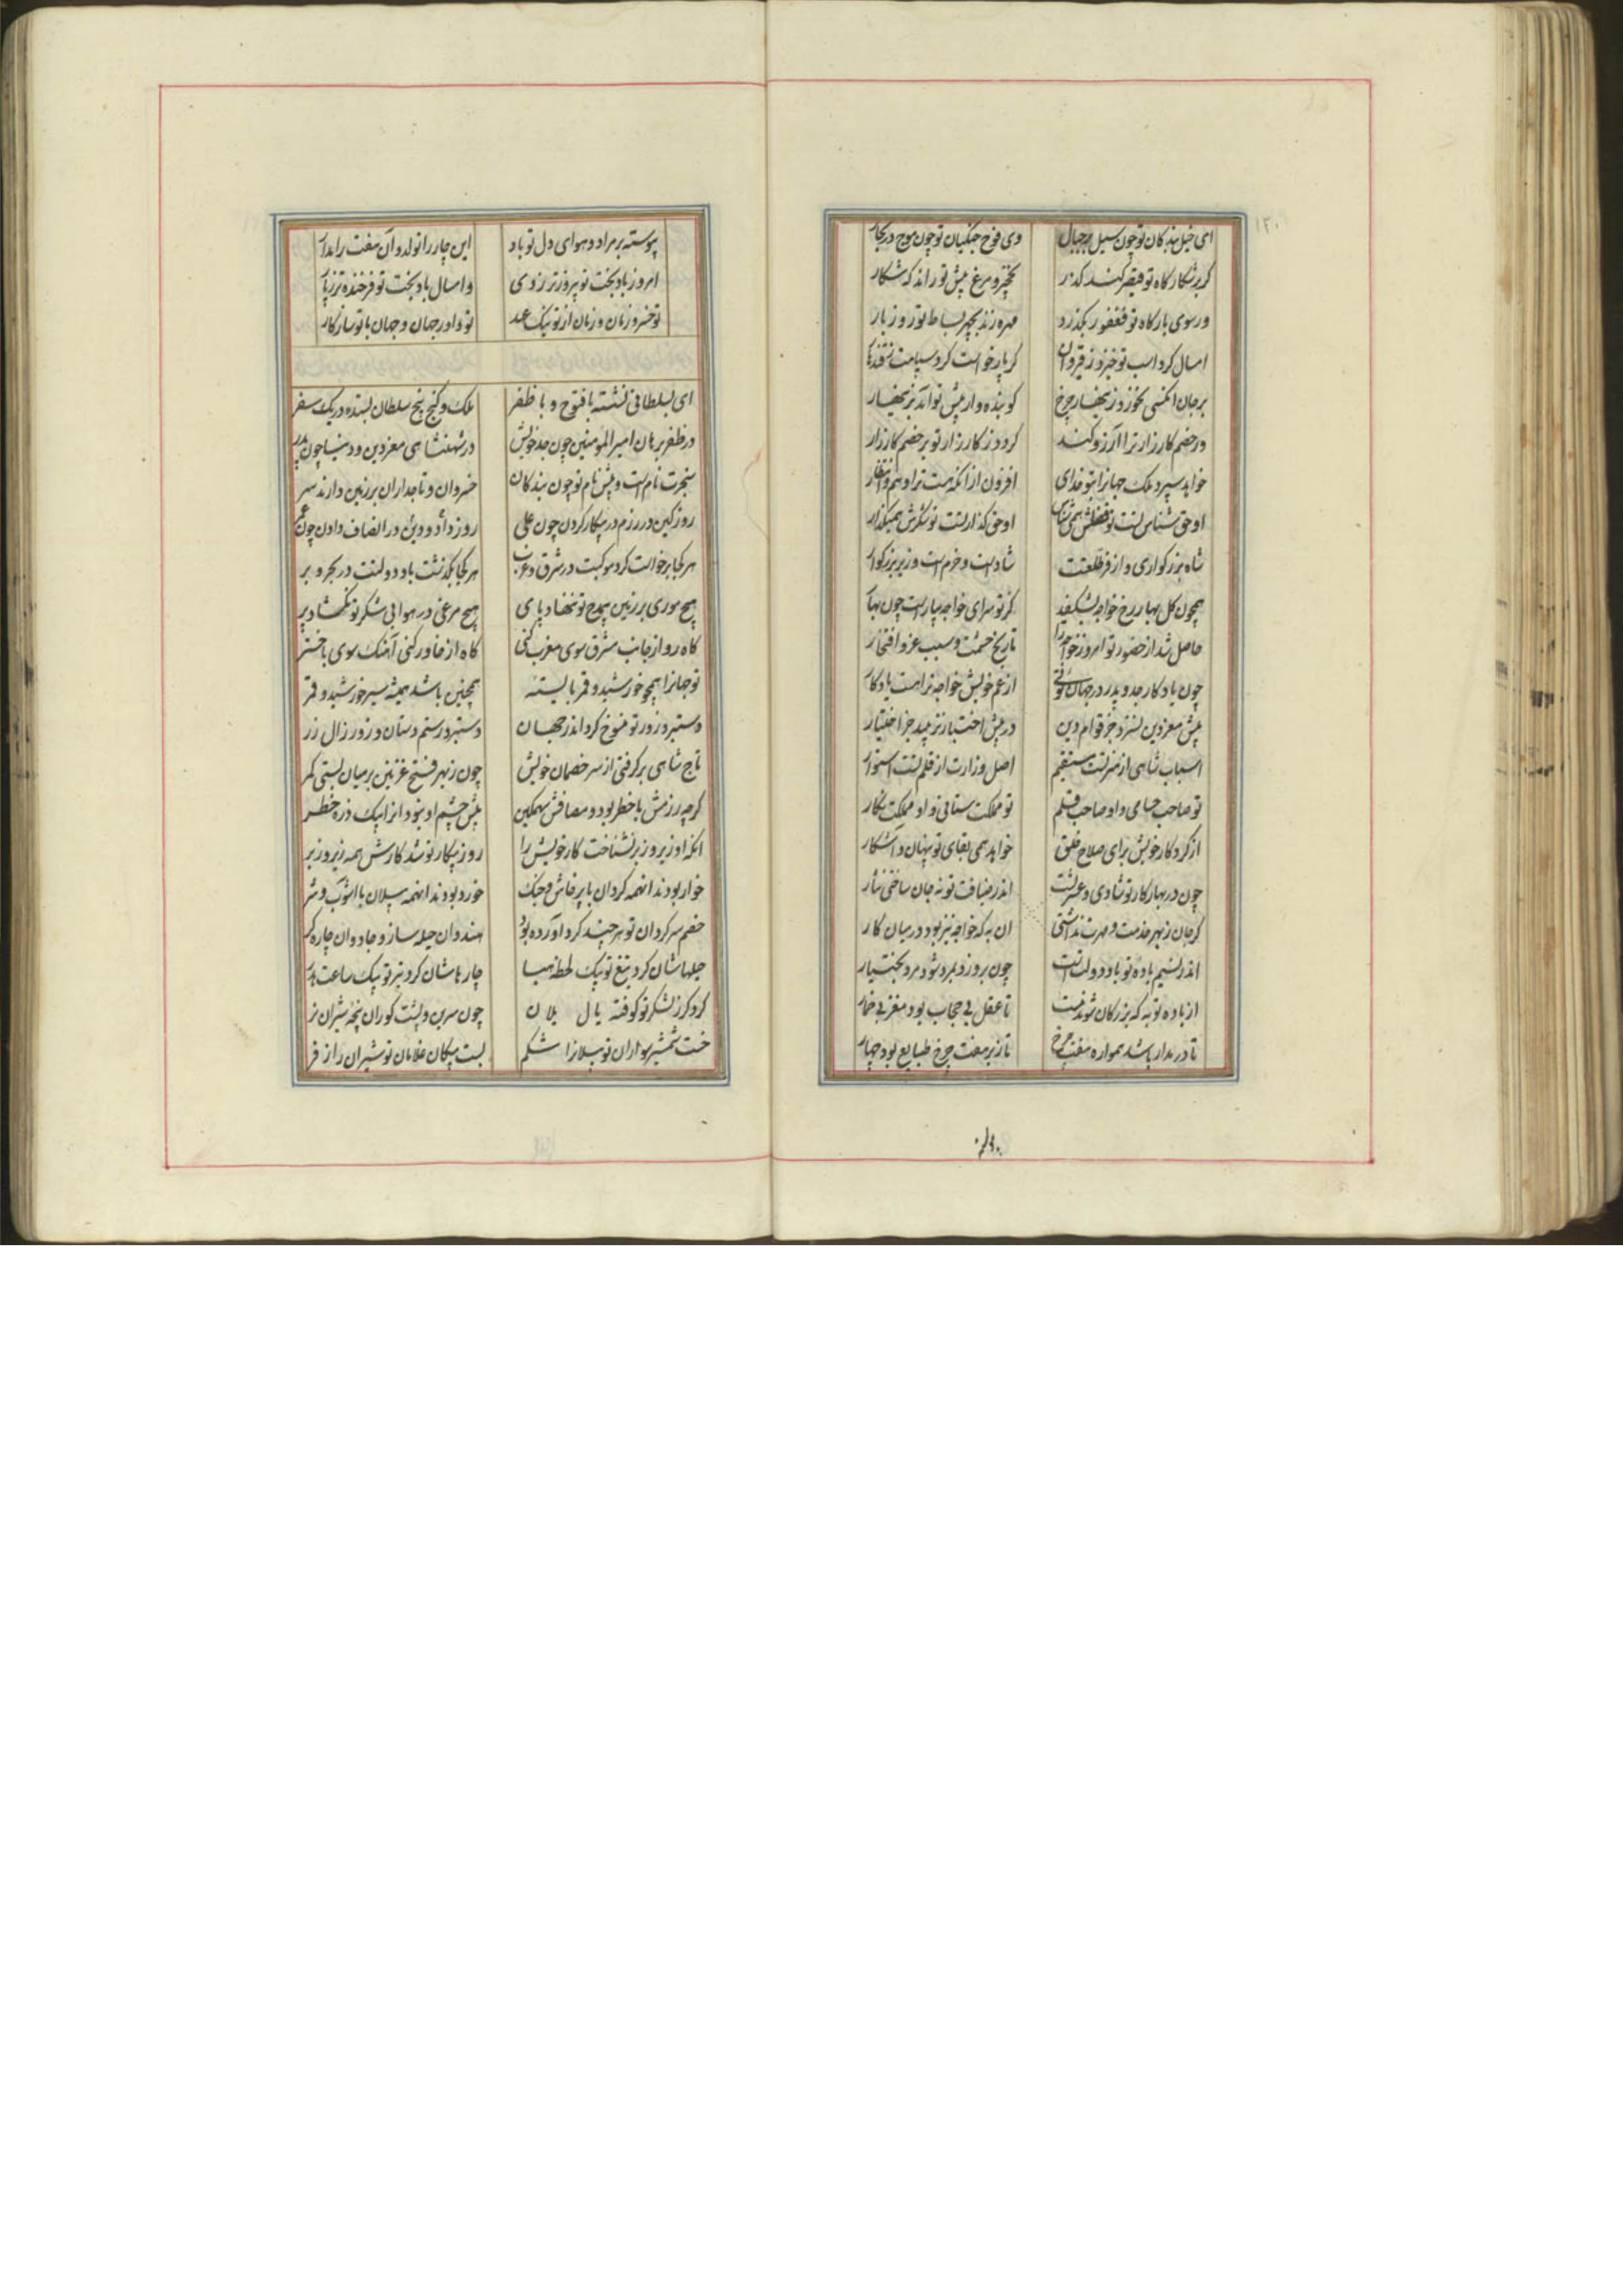 ای خیل بندکان تو چون سیل در جبال وی فوج جنکیان تو چون موج در بحار
کر بر شکار کاه تو قیصر کند کذر نخچیر و مرغ پیش تو راند که شکار
ور سوی بارکاه تو فغفور بکذرد مهره زند بچهر بساط تو روز بار
امسال کرد اسب تو خیزد ز قیروان کر پار خواست کرد سپاهت ز قندهار
بر جان انکسی بخورد زینهار چرخ کو بنده وار پیش تو آید بزینهار
ور خصم کارزار ترا آرزو کند کردد ز کارزار تو بر خصم کار زار
خواهد سپرد ملک جهانرا بتو خدای افزون از انکه هست ترا وهم و انتظار
او حق شناس تست تو فضلش همی شناس او حق کذار تست تو شکرش همیکذار
شاه بزرکواری و از فر طلعتت شادست و خرم است وزیر بزرکوار
همچون کل بهار رخ خواجه بشکفد کز تو سرای خواجه بیاراست چون بهار
حاصل شد از حضور تو امروز خواجه را تاریخ حشمت و سبب عز و افتخار
چون یادکار جد و پدر در جهان توئی از عم خویش خواجه ترا هست یادکار
پیش معز دین نسزد جز قوام دین در پیش اختیار نزیبد جز اختیار
اسباب شاهی از هنر تست مستقیم اصل وزارت از قلم تست استوار
تو صاحب حسامی و او صاحب قلم تو مملکت ستانی و او مملکت نکار
از کردکار خویش برای صلاح خلق خواهد همی بقای تو پنهان و آشکار
چون در بهار کار تو شادی و عشرتست اندر ضیافت تو نه جان ساختی نثار
کر جان ز بهر خدمت و مهرت نداشتی ان به که خواجه نیز بود در میان کار
اندر نسیم باده تو باد دولت است چون بروزد بمرد شود مرد بختیار
از باده تو به که بزرکان شوند مست تا عقل بی حجاب بود مغز بی خمار
تا در مدار باشد همواره هفت چرخ تا زیر هفت چرخ طبایع بود چهار
پیوسته بر مراد و هوای دل تو باد این چار را تولد و آن هفت را مدار
امروز باد بخت تو پیروزتر ز دی و امسال باد بخت تو فرخنده تر ز پار
تو خسرو زمان و زمان از تو نیک عهد تو داور جهان و جهان با تو سازکار
ای بسلطانی نشسته با فتوح و با ظفر ملک و کنج پنج سلطان بستده در یک سفر
در ظفر برهان امیر المومنین چون جد خویش در شهنشاهی معز دین و دنیا چون پدر
سنجرت نام است و پیش نام تو چون بندکان خسروان و تاجداران بر زمین دارند سر
روز کین در رزم در پیکار کردن چون علی روز داد و دین در انصاف دادن چون عمر
هر کجا برخواست کرد موکبت در شرق و غرب هر کجا بکذشت باد دولتت در بحر و بر
هیچ موری بر زمین بی مدح تو ننهاد پای هیچ مرغی در هوا بی شکر تو نکشاد پر
کاه رو از جانب مشرق سوی مغرب کنی کاه از خاور کنی آهنک سوی باختر
تو جهانرا همچو خورشید و قمر بایسته همچنین باشد همیشه سیر خورشید و قمر
دستبرد و زور تو منسوخ کرد اندر جهان دستبرد رستم دستان و زور زال زر
تاج شاهی برکرفتی از سر خصمان خویش چون ز بهر فتح غزنین بر میان بستی کمر
کرچه رزمش با خطر بود و مصافش سهمکین پیش چشم او نبود انرا یک ذره خطر
انکه او زیر و زبر نشناخت کار خویش را روز پیکار تو شد کارش همه زیر و زبر
خوار بودند انهمه کردان با پرخاش و جنک خورد بودند انهمه پیلان با اشوب و شر
خصم سرکردان تو هر چند کرد اورده بود هندوان حیله ساز و جادوان چاره کر
حیلهاشان کرد تیغ تو بیک لحظه هبا چارهاشان کرد تیر تو بیک ساعت هدر
کرد کرز لشکر تو کوفته یال یلان چون سرین و پشت کوران پنجه شیران نر
خست شمشیر سواران تو پیلانرا شکم بست پیکان غلامان تو شیران را ز فر